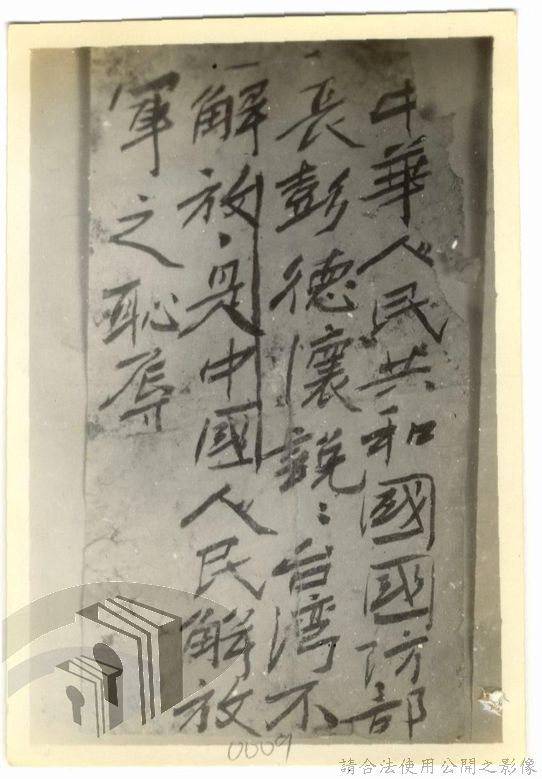 中華人民共和國國防部
長彭德懷說：台灣不
解放，是中國人民解放
軍之恥辱
0009
請合法使用公開之影像